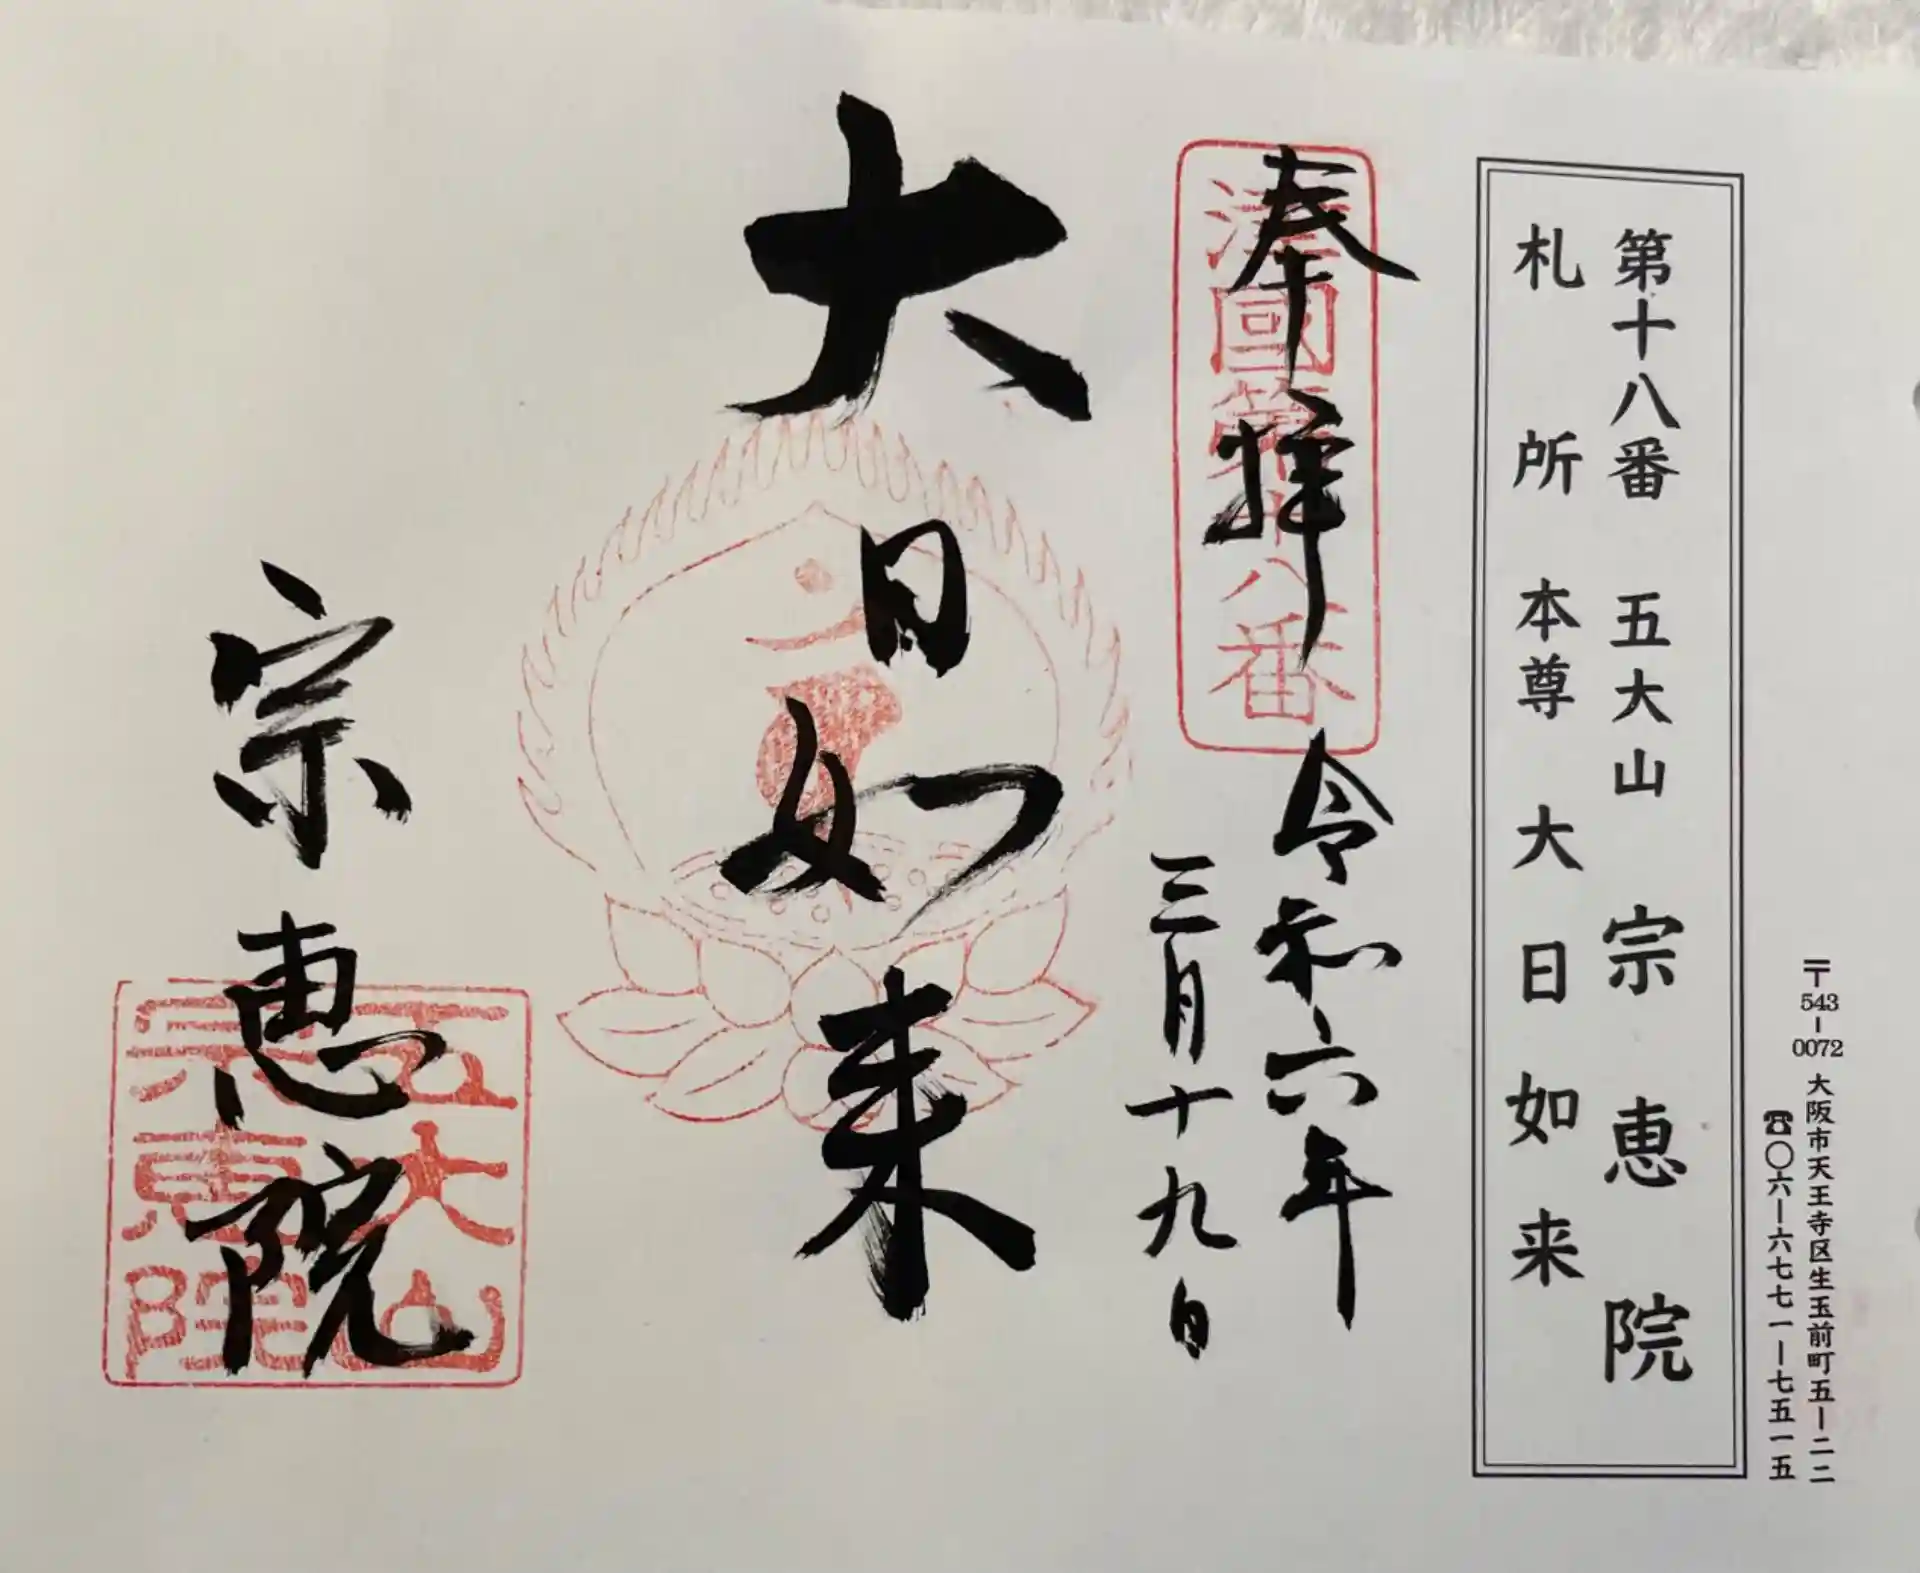 〒543-0072 大阪市天王寺区生玉前町五ー二二
☎〇六ー六七七一ー七五一五
第十八番 五大山 宗恵院
札所本尊 大日如来
奉拝
摂國第十八番
令和六年
三月十九日
大日如来
宗恵院
五大山
宗恵院